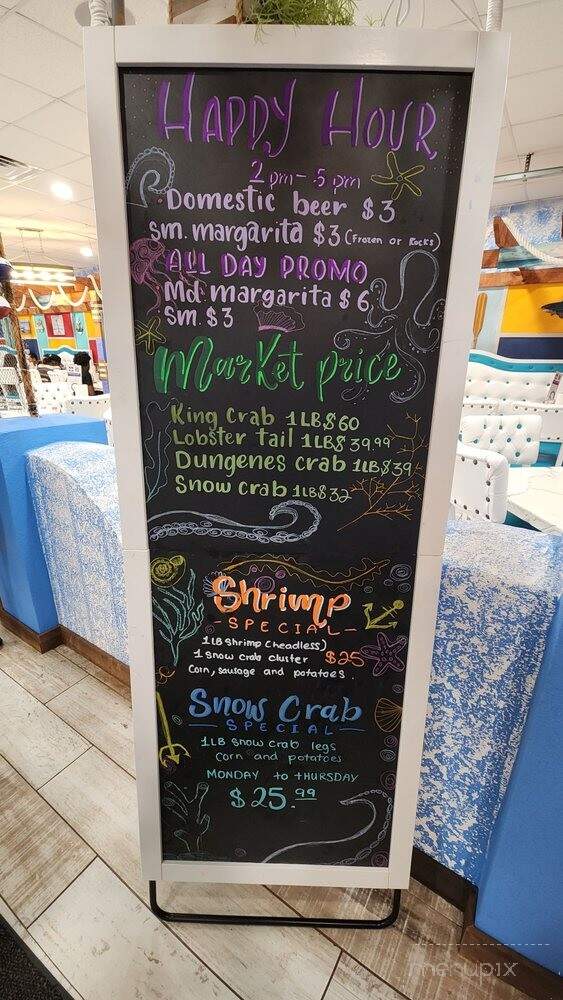 Happy Hour
2 pm - 5 pm
Domestic beer $3
sm. margarita $3 (Frozen or Rocks)
ALL DAY PROMO
Md. margarita $6
Sm. $3
Market price
King Crab 1LB $60
Lobster tail 1LB $39.99
Dungenes crab 1LB $39
Snow crab 1LB $32
Shrimp
- SPECIAL -
1LB Shrimp (headless)
1 snow crab cluster $25
Corn, sausage and potatoes.
Snow Crab
- SPECIAL -
1LB Snow crab legs
Corn and potatoes
MONDAY to tHURSDAY
$25.99
menupix